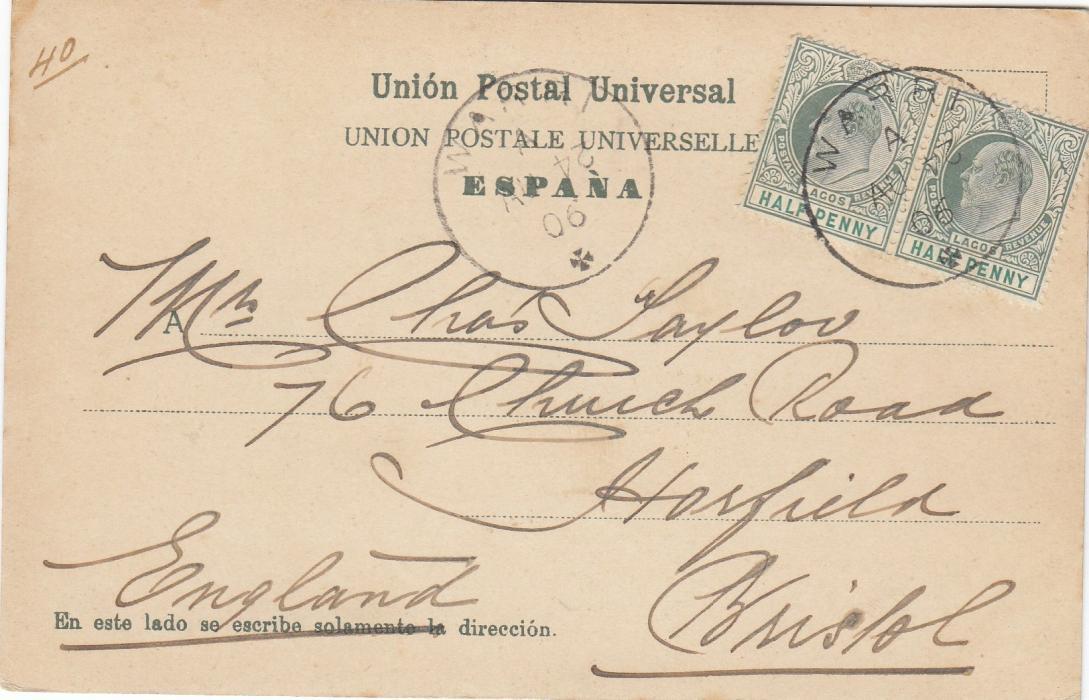 40
Unión Postal Universal
UNION POSTALE UNIVERSELLE
ESPAÑA
WARRI
AU 24
06
POSTAGE LAGOS REVENUE
HALF PENNY
POSTAGE LAGOS REVENUE
HALF PENNY
WARRI
AU 24
06
A Mrs Chas Taylor
76 Church Road
Horfield
Bristol
England
En este lado se escribe solamente la dirección.